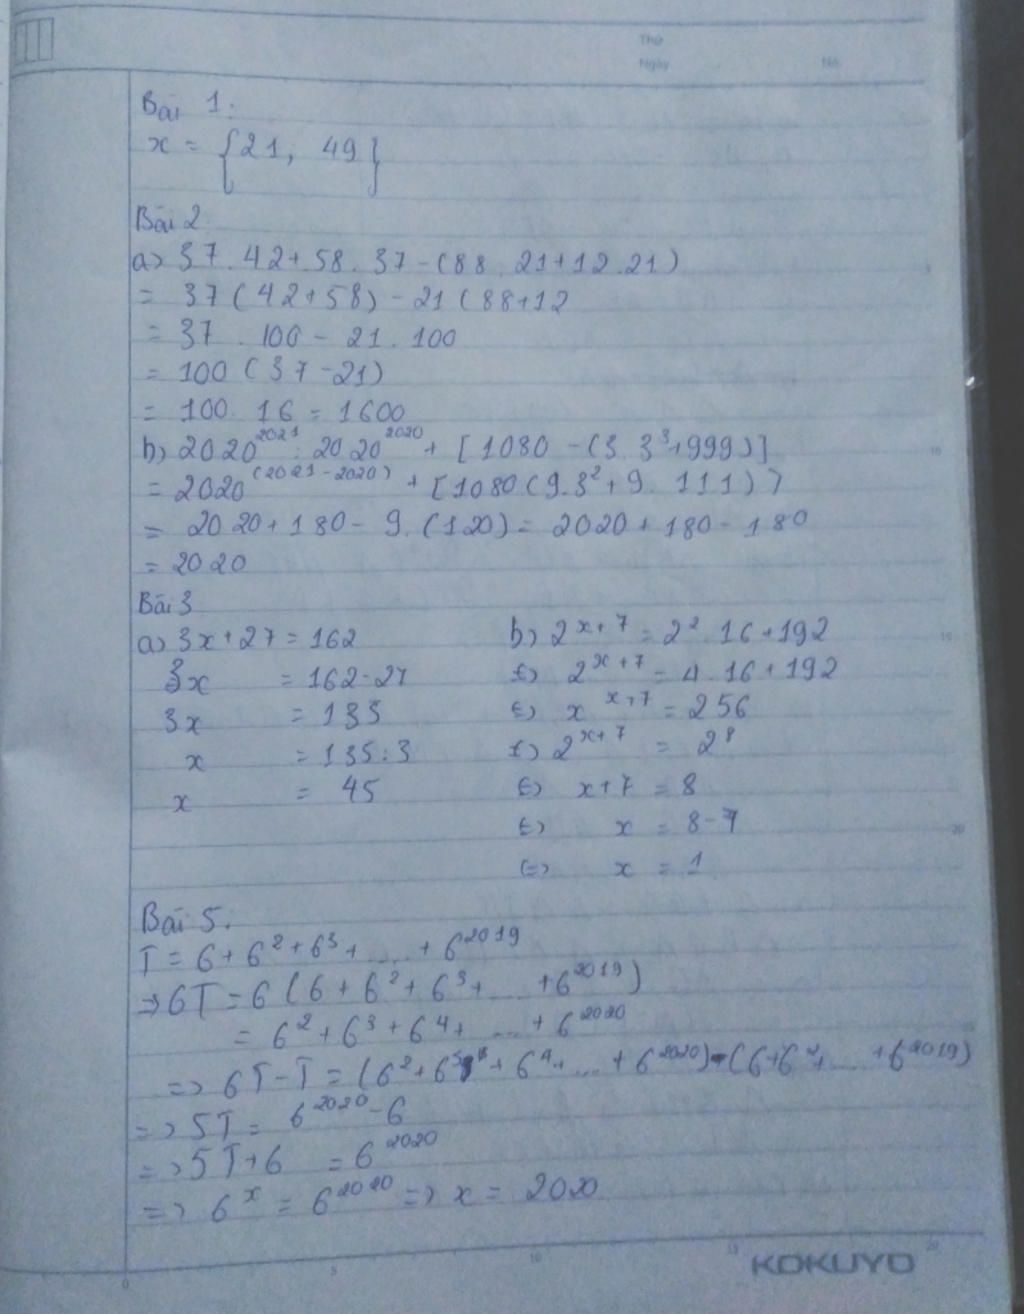 Thứ
Ngày No.
Bài 1:
x = {21, 49}
Bài 2
a) 37.42+58.37-(88.21+12.21)
= 37(42+58) - 21(88+12
= 37.100 - 21.100
= 100(37-21)
= 100.16 = 1600
b) 2020^2021 : 2020^2020 + [1080 - (3.3^3+999)]
= 2020^(2021-2020) + [1080(9.3^2+9.111)]
= 2020+180 - 9.(120) = 2020+180-180
= 2020
Bài 3
a) 3x+27 = 162
3x = 162-27
3x = 135
x = 135:3
x = 45
b) 2^x+7 = 2^2.16+192
(=) 2^x+7 = 4.16+192
(=) x^x+7 = 256
(=) 2^x+7 = 2^8
(=) x+7 = 8
(=) x = 8-7
(=) x = 1
Bài 5:
T = 6+6^2+6^3+....+6^2019
=> 6T = 6(6+6^2+6^3+...+6^2019)
= 6^2+6^3+6^4+...+6^2020
=> 6T-T = (6^2+6^3+6^4+...+6^2020)-(6+6^2+...+6^2019)
=> 5T = 6^2020-6
=> 5T+6 = 6^2020
=> 6^x = 6^2020 => x = 2020
KOKUYO